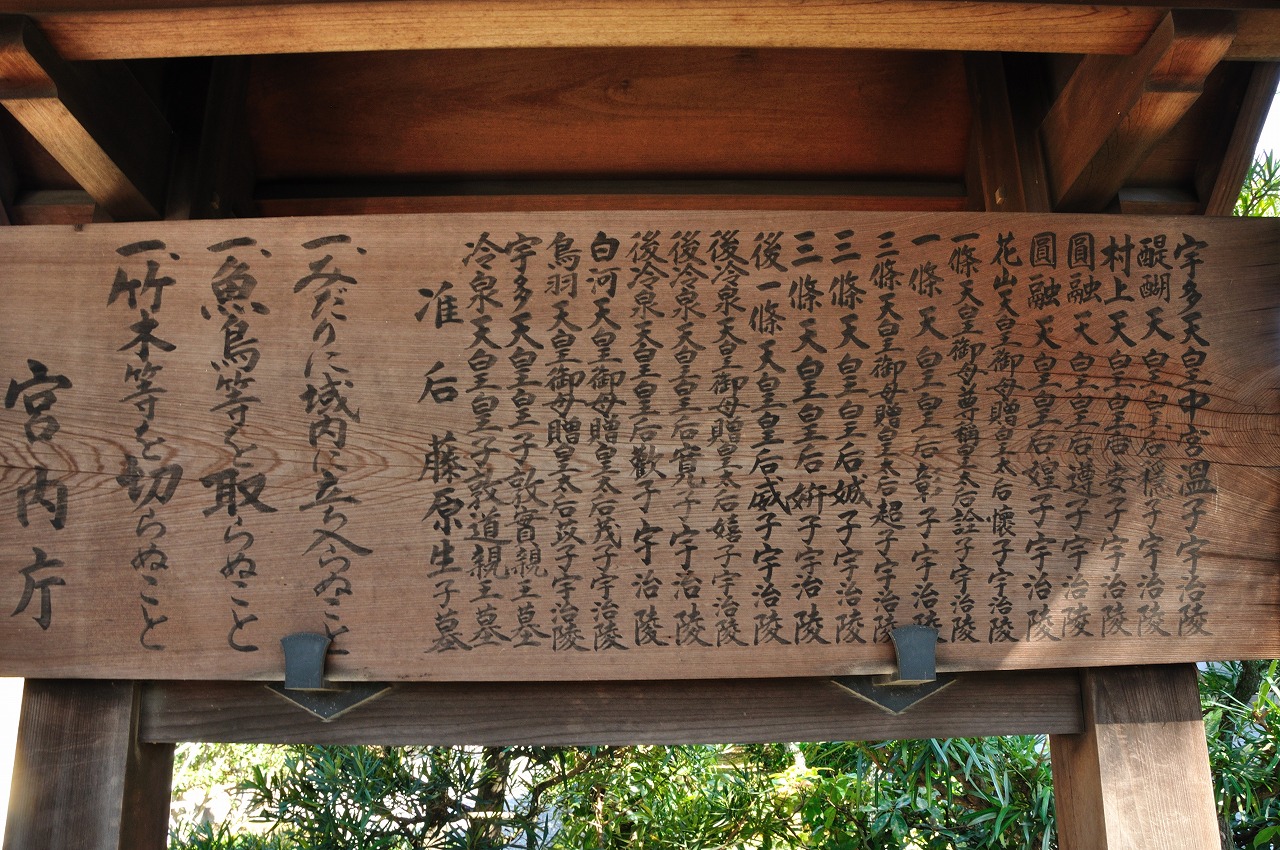 宇多天皇中宮溫子宇治陵
醍醐天皇皇后穩子宇治陵
村上天皇皇后安子宇治陵
圓融天皇皇后遵子宇治陵
圓融天皇皇后媓子宇治陵
花山天皇御母贈皇太后懷子宇治陵
一條天皇御母尊稱皇太后詮子宇治陵
一條天皇皇后彰子宇治陵
三條天皇御母贈皇太后超子宇治陵
三條天皇皇后娍子宇治陵
三條天皇皇后姸子宇治陵
後一條天皇皇后威子宇治陵
後冷泉天皇御母贈皇太后嬉子宇治陵
後冷泉天皇皇后寬子宇治陵
後冷泉天皇皇后歡子宇治陵
白河天皇御母贈皇太后茂子宇治陵
鳥羽天皇御母贈皇太后苡子宇治陵
宇多天皇皇子敦實親王墓
冷泉天皇皇子敦道親王墓
准后藤原生子墓
一、みだりに域内に立ち入らぬこと
一、魚鳥等を取らぬこと
一、竹木等を切らぬこと
宮内庁